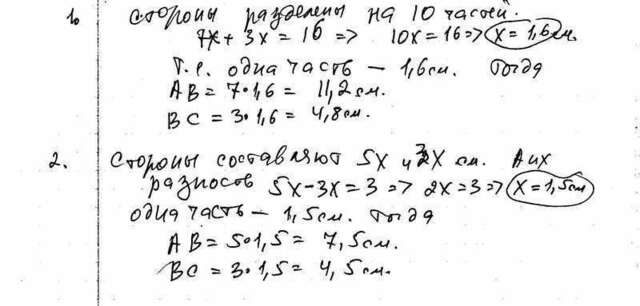 1. Стороны разделены на 10 частей.
7x + 3x = 16 => 10x = 16 => x = 1,6 см.
Т.е. одна часть — 1,6 см. Тогда
AB = 7•1,6 = 11,2 см.
BC = 3•1,6 = 4,8 см.
2. Стороны составляют 5x и 3x см. А их
разность 5x-3x = 3 => 2x = 3 => x = 1,5 см
одна часть — 1,5 см. Тогда
AB = 5•1,5 = 7,5 см.
BC = 3•1,5 = 4,5 см.